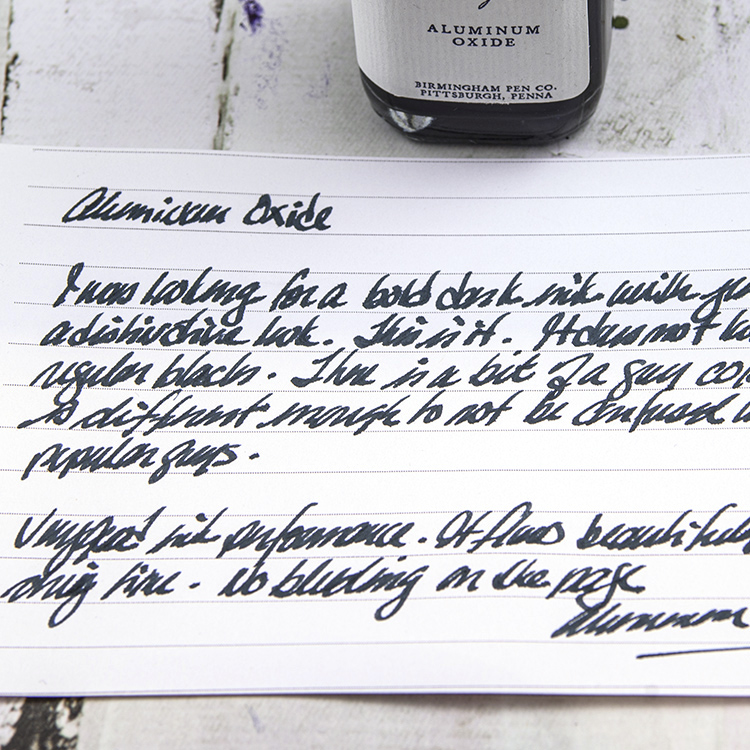 ALUMINUM
OXIDE
BIRMINGHAM PEN CO.
PITTSBURGH, PENNA
Aluminum Oxide
I was looking for a bold dark ink with
a distinctive look. This is it. It does not
regular blacks. There is a bit of a grey
is different enough to not be confused
popular greys.
Very good ink performance. It flows
drying time. No bleeding on the page
Aluminum